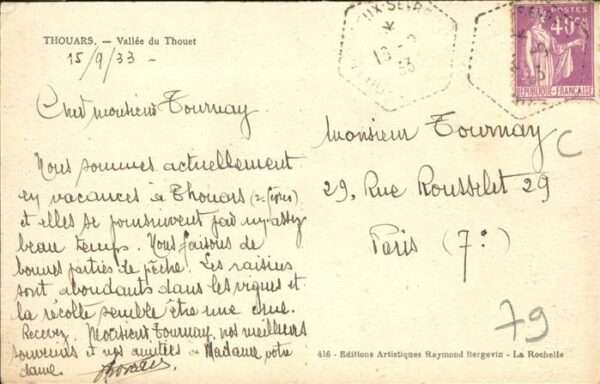 THOUARS. — Vallée du Thouet
15/9/33 -
Cher monsieur Tournay
Nous sommes actuellement
en vacances à Thouars (2 Sèvres)
et elles se poursuivent par un assez
beau temps. Nous faisons de
bonnes parties de pêche. Les raisins
sont abondants dans les vignes et
la récolte semble être une
Recevez, Monsieur Tournay, nos meilleurs
souvenirs et nos amitiés à Madame votre
dame.
Monsieur Tournay
29, Rue Rousselet 29
Paris (7e)
C
79
POSTES
40c
REPUBLIQUE FRANÇAISE
416 - Editions Artistiques Raymond Bergevin - La Rochelle